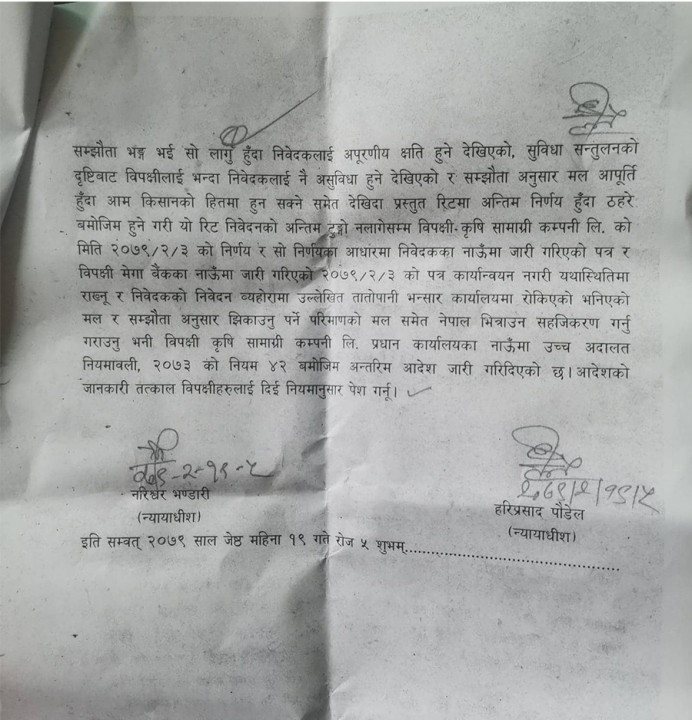 सम्झौता भङ्ग भई सो लागु हुँदा निवेदकलाई अपूरणीय क्षति हुने देखिएको, सुविधा सन्तुलनको
दृष्टिबाट विपक्षीलाई भन्दा निवेदकलाई नै असुविधा हुने देखिएको र सम्झौता अनुसार मल आपूर्ति
हुँदा आम किसानको हितमा हुन सक्ने समेत देखिदा प्रस्तुत रिटमा अन्तिम निर्णय हुँदा ठहरे
बमोजिम हुने गरी यो रिट निवेदनको अन्तिम टुङ्गो नलागेसम्म विपक्षी कृषि सामाग्री कम्पनी लि. को
मिति २०७९/२/३ को निर्णय र सो निर्णयका आधारमा निवेदकका नाऊँमा जारी गरिएको पत्र र
विपक्षी मेगा बैंकका नाऊँमा जारी गरिएको २०७९/२/३ को पत्र कार्यान्वयन नगरी यथास्थितिमा
राख्नू र निवेदकको निवेदन व्यहोरामा उल्लेखित तातोपानी भन्सार कार्यालयमा रोकिएको भनिएको
मल र सम्झौता अनुसार झिकाउनु पर्ने परिमाणको मल समेत नेपाल भित्राउन सहजिकरण गर्नु
गराउनु भनी विपक्षी कृषि सामाग्री कम्पनी लि. प्रधान कार्यालयका नाऊँमा उच्च अदालत
नियमावली, २०७३ को नियम ४२ बमोजिम अन्तरिम आदेश जारी गरिदिएको छ। आदेशको
जानकारी तत्काल विपक्षीहरुलाई दिई नियमानुसार पेश गर्नू।
नरिश्वर भण्डारी
(न्यायाधीश)
२०७९/२/१९/५
हरिप्रसाद पौडेल
(न्यायाधीश)
इति सम्वत् २०७९ साल जेष्ठ महिना १९ गते रोज ५ शुभम्..........................................